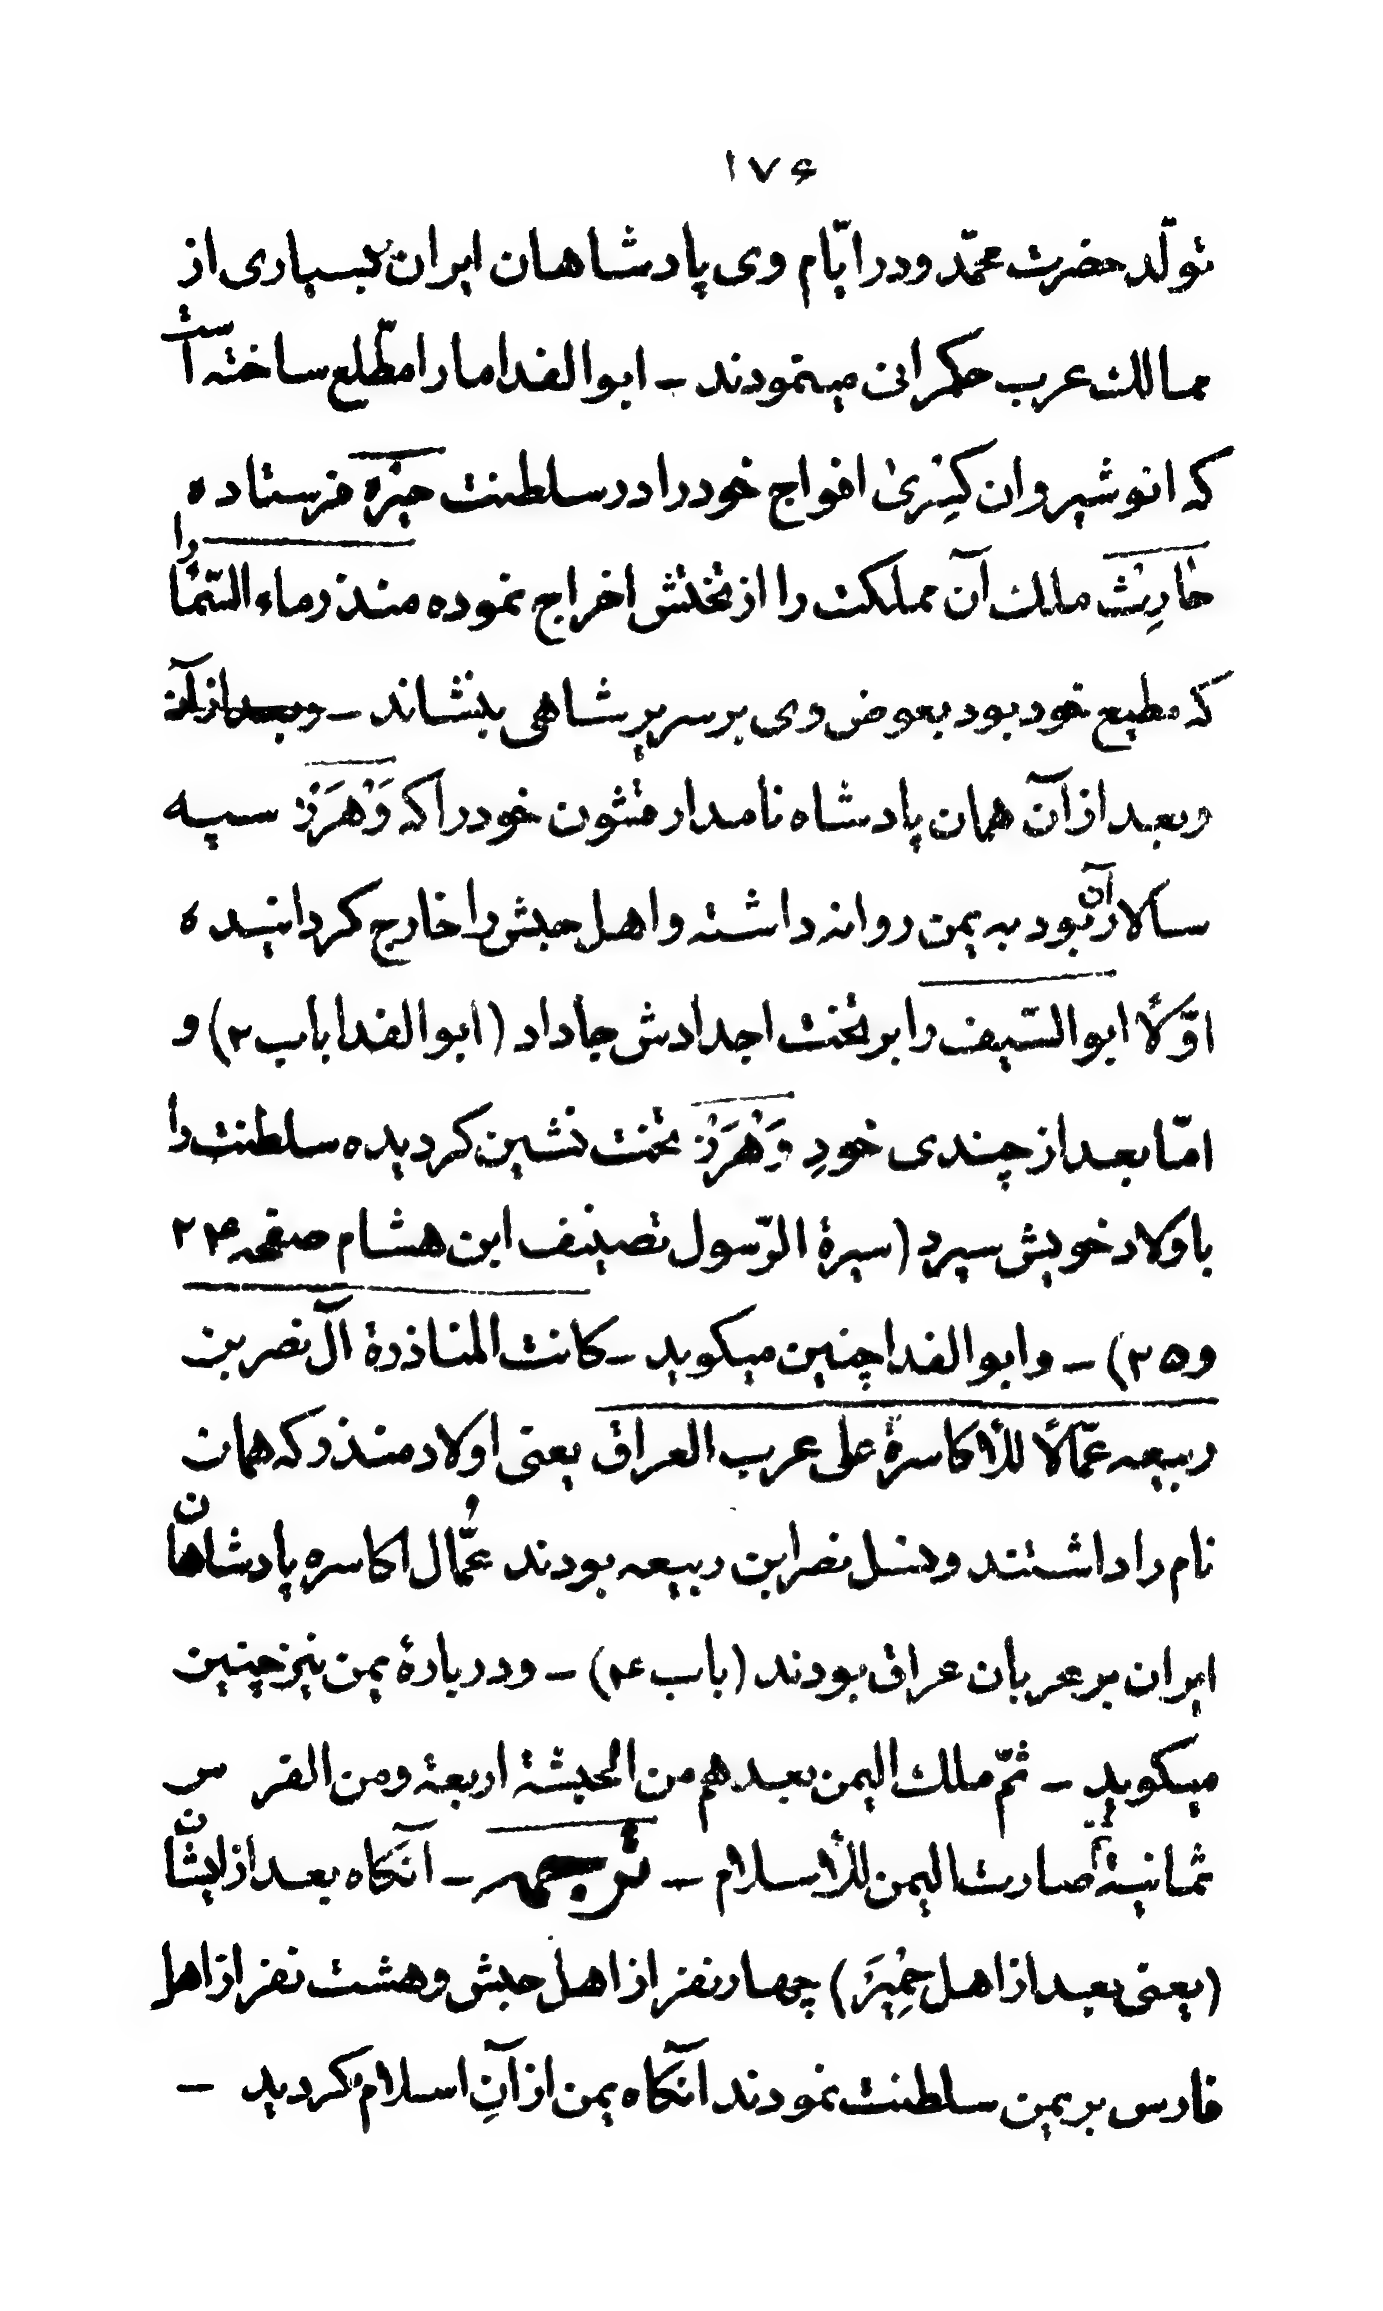 ۱۷۶
تولّد حضرت محمّد و در ایّام وی پادشاهان ایران بر بسیاری از
ممالک عرب حکمرانی مینمودند - ابوالفدا ما را مطّلع ساخته است
که انوشیروان کِسْریٰ افواج خود را در سلطنت حیْرَه فرستاده
حٰارِث ملک آن مملکت را از تختش اخراج نموده منذر ماء السّمٰا را
که مطیع خود بود بعوض وی بر سریر شاهی بنشاند -
و بعد از آن همان پادشاه نامدار قشون خود را که وَهْرَز سپه
سالار آن بود به یمن روانه داشته و اهل حبش را خارج گردانیده
اوّلاً ابوالسّیف را بر تخت اجدادش جا داد (ابوالفدا باب ۲) و
امّا بعد از چندی خودِ وَهْرَز تخت نشین گردیده سلطنت را
باولاد خویش سپرد (سیرة الرّسول تصنیف ابن هشام صفحه ۲۴
و ۲۵) - و ابوالفدا چنین میگوید - کانت المناذرة آل نصر بن
ربیعه عمّالاً للأکاسرة علی عرب العراق یعنی اولاد منذر که همان
نام را داشتند و نسل نصر ابن ربیعه بودند عُمّال اکاسره پادشاهان
ایران بر عربان عراق بودند (باب ۴) - و دربارهٔ یمن نیز چنین
میگوید - ثمّ ملک الیمن بعدهم من الحبشة اربعة و من الفرس
ثمانیة ثم صارت الیمن للأسلام - ترجمه - آنگاه بعد از ایشان
(یعنی بعد از اهل حِمْیَر) چهار نفر از اهل حبش و هشت نفر از اهل
فارس بر یمن سلطنت نمودند آنگاه یمن از آنِ اسلام گردید -